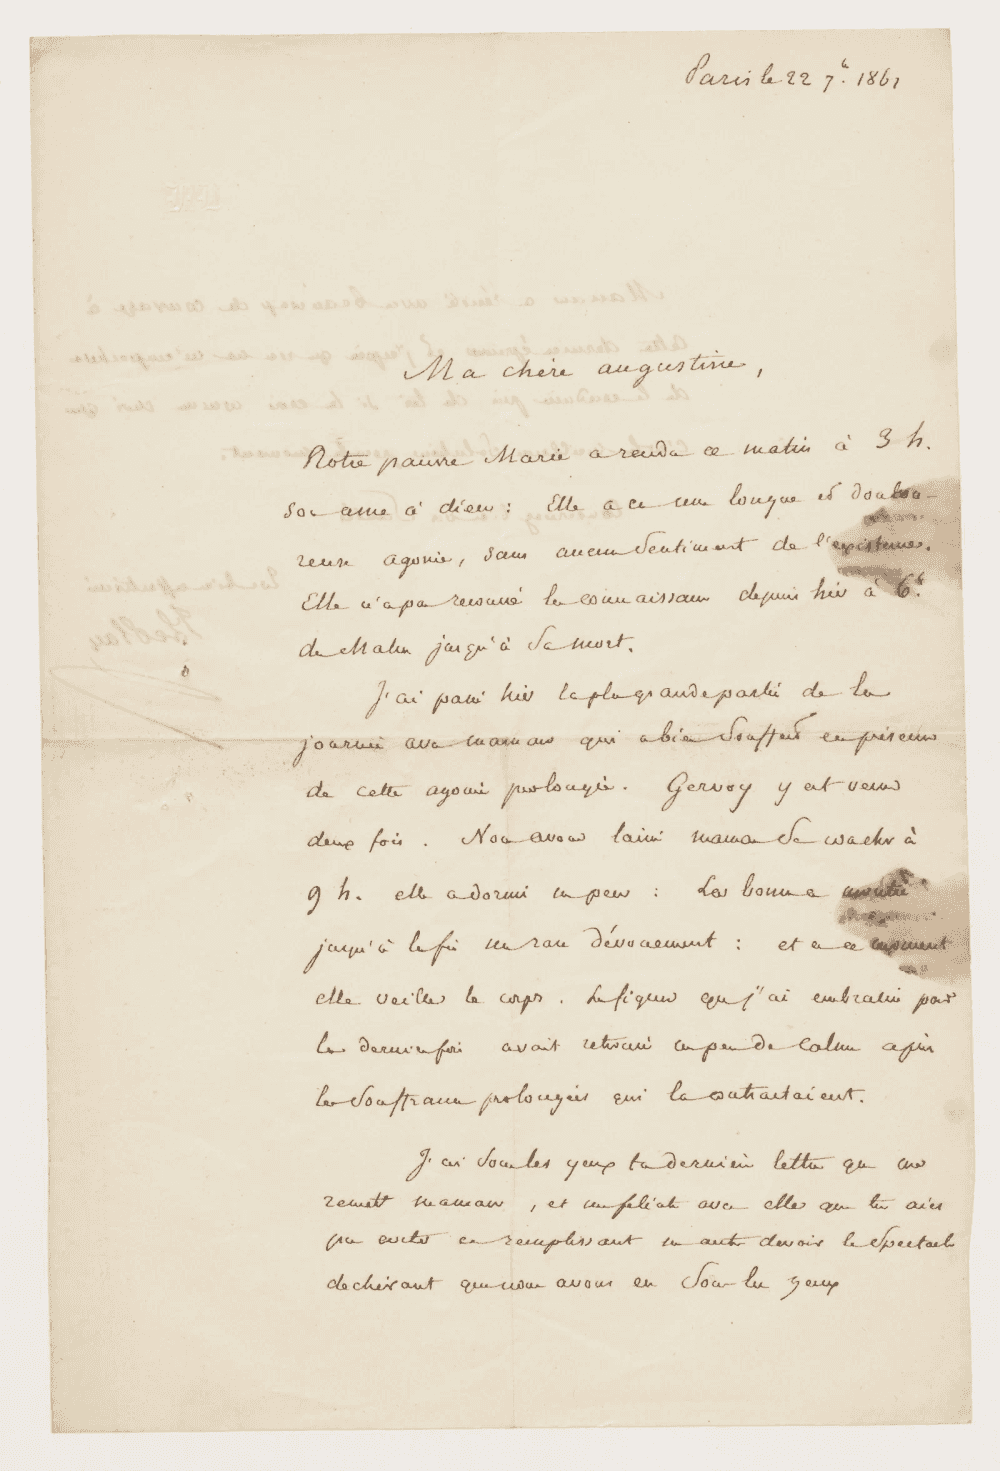 Paris le 22 7e. 1861
Ma chère augustine,
Notre pauvre Marie a rendu ce matin à 3 h.
son ame à dieu : Elle a eu une longue et doulou-
reuse agonie, sans aucun sentiment de l'existence.
Elle n'a pas recouvré la connaissance depuis hier à 6h.
du Matin jusqu'à sa mort.
J'ai passé hier la plus grande partie de la
journée avec maman qui a bien souffert en présence
de cette agonie prolongée. Gervoy y est venu
deux fois. Nous avons laissé maman se coucher à
9 h. elle a dormi un peu : La bonne a montré
jusqu'à la fin un rare dévouement : et en ce moment
elle veille le corps. La figure que j'ai embrassée pour
la dernière fois avait retrouvé un peu de calme après
les souffrances prolongées qui la contractaient.
J'ai sous les yeux ta dernière lettre que me
remet maman, et me félicite avec elle que tu aies
pu eviter en remplissant un autre devoir le spectacle
dechirant que nous avons eu sous les yeux